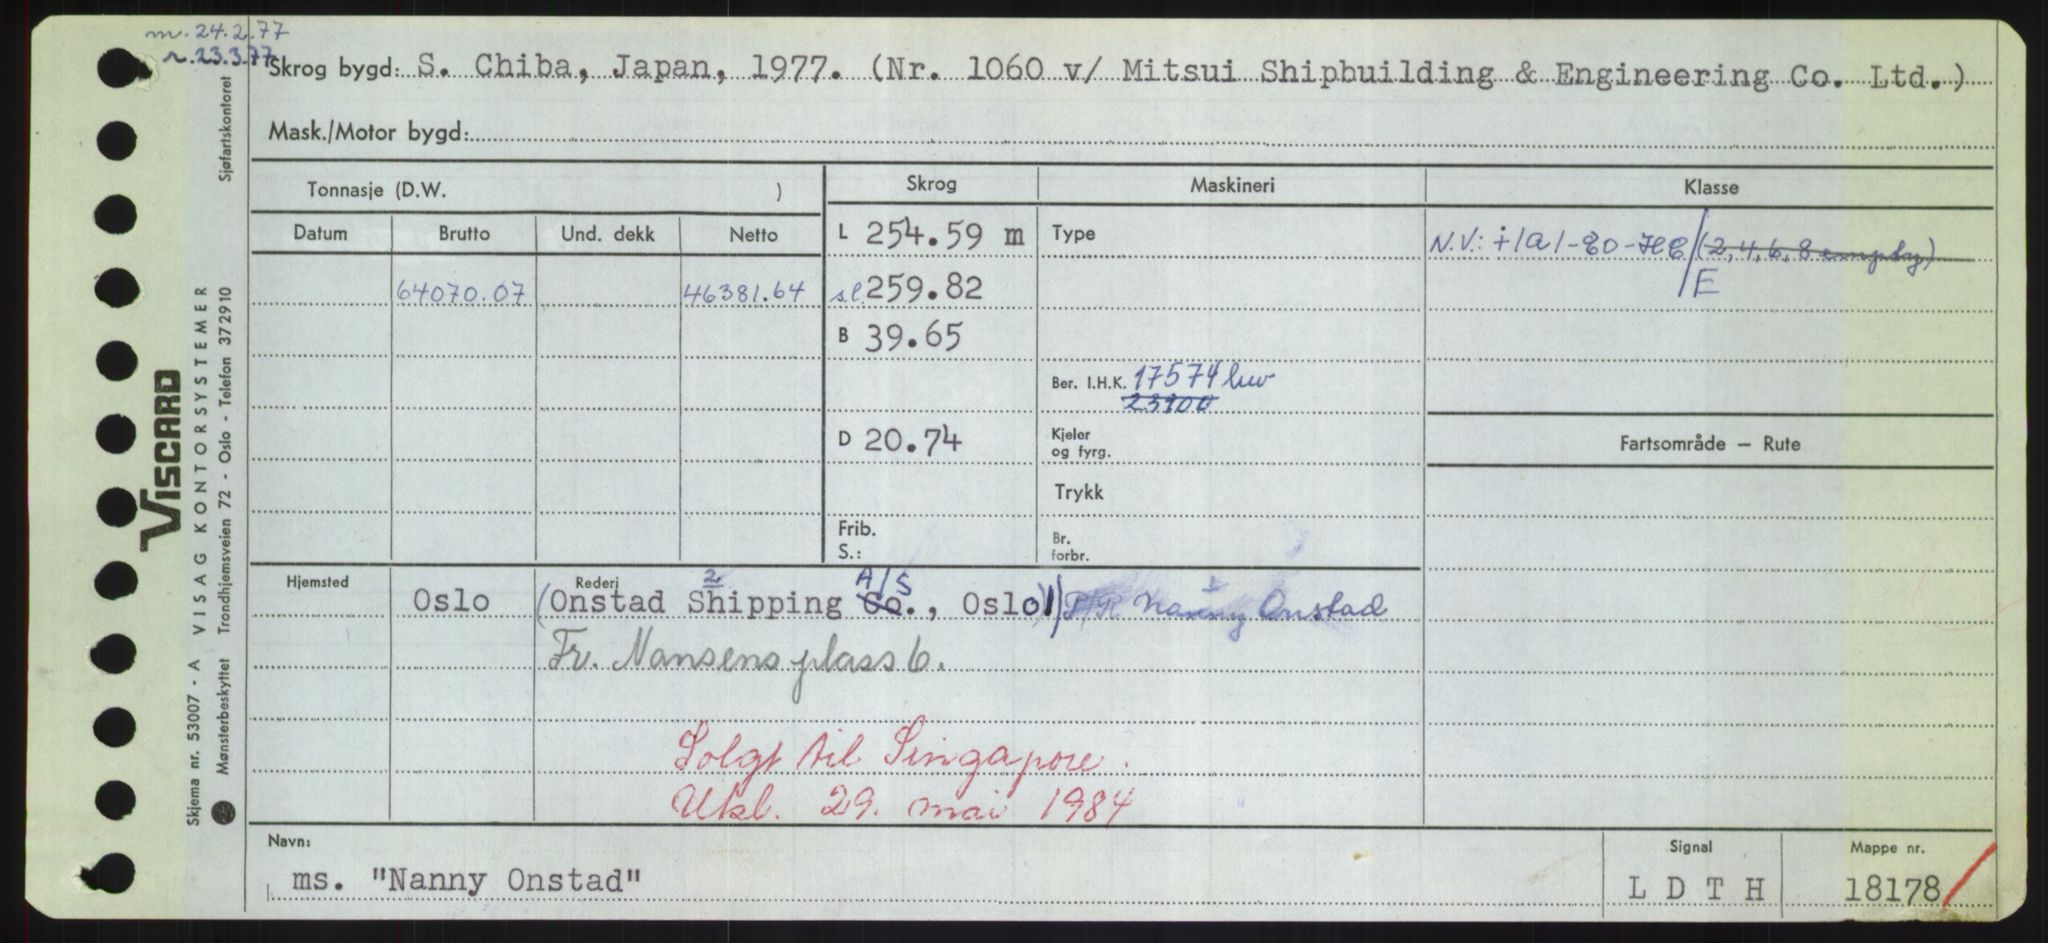 m. 24.2.77
r. 23.3.77
Skrog bygd: S. Chiba, Japan, 1977. (Nr. 1060 v/ Mitsui Shipbuilding & Engineering Co. Ltd.)
Mask./Motor bygd:
Tonnasje (D.W. ) Skrog Maskineri Klasse
Datum Brutto Und. dekk Netto L 254.59 m Type N.V.: +1A1-E0-
(2,4,6,8 empty)
/E
64070.07 46381.64 s.l. 259.82
B 39.65
Ber. I.H.K. 17574 kw
23900
D 20.74 Kjeler og fyrg. Fartsområde — Rute
Trykk
Frib. S.: Br. forbr.
Hjemsted Oslo Rederi (Onstad Shipping Co. A/S, Oslo) P/R Nanny Onstad
Fr. Nansens plass 6.
Solgt til Singapore.
Ukl. 29. mai 1984
Navn: Signal Mappe nr.
ms. "Nanny Onstad" L D T H 18178
VISCARD
VISAG KONTORSYSTEMER Sjøfartskontoret
Skjema nr. 53007 - A
Mønsterbeskyttet Trondhjemsveien 72 - Oslo - Telefon 372910